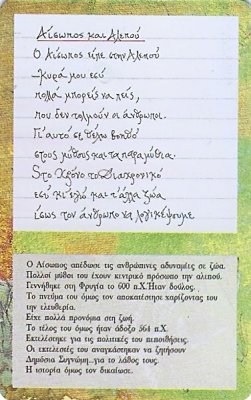 Αίσωπος και Αλεπού
Ο Αίσωπος είπε στην Αλεπού
-Κυρά μου εσύ
πολλά μπορείς να πεις,
που δεν τολμούν οι άνθρωποι.
Γι' αυτό σε θέλω βοηθό
στους μύθους και τα παραμύθια.
Στο Χρόνο το Διαχρονικό
εσύ κι εγώ και τ' άλλα ζώα
ίσως τον άνθρωπο να λογικέψουμε
Ο Αίσωπος απέδωσε τις ανθρώπινες αδυναμίες σε ζώα.
Πολλοί μύθοι του έχουν κεντρικό πρόσωπο την αλεπού.
Γεννήθηκε στη Φρυγία το 600 π.Χ.Ήταν δούλος.
Το πνεύμα του όμως τον αποκατέστησε χαρίζοντας του
την ελευθερία.
Είχε πολλά προνόμια στη ζωή.
Το τέλος του όμως ήταν άδοξο 564 π.Χ.
Εκτελέσθηκε για τις πολιτικές του πεποιθήσεις.
Οι εκτελεστές του αναγκάστηκαν να ζητήσουν
Δημόσια Συγνώμη...για το λάθος τους.
Η ιστορία όμως τον δικαίωσε.